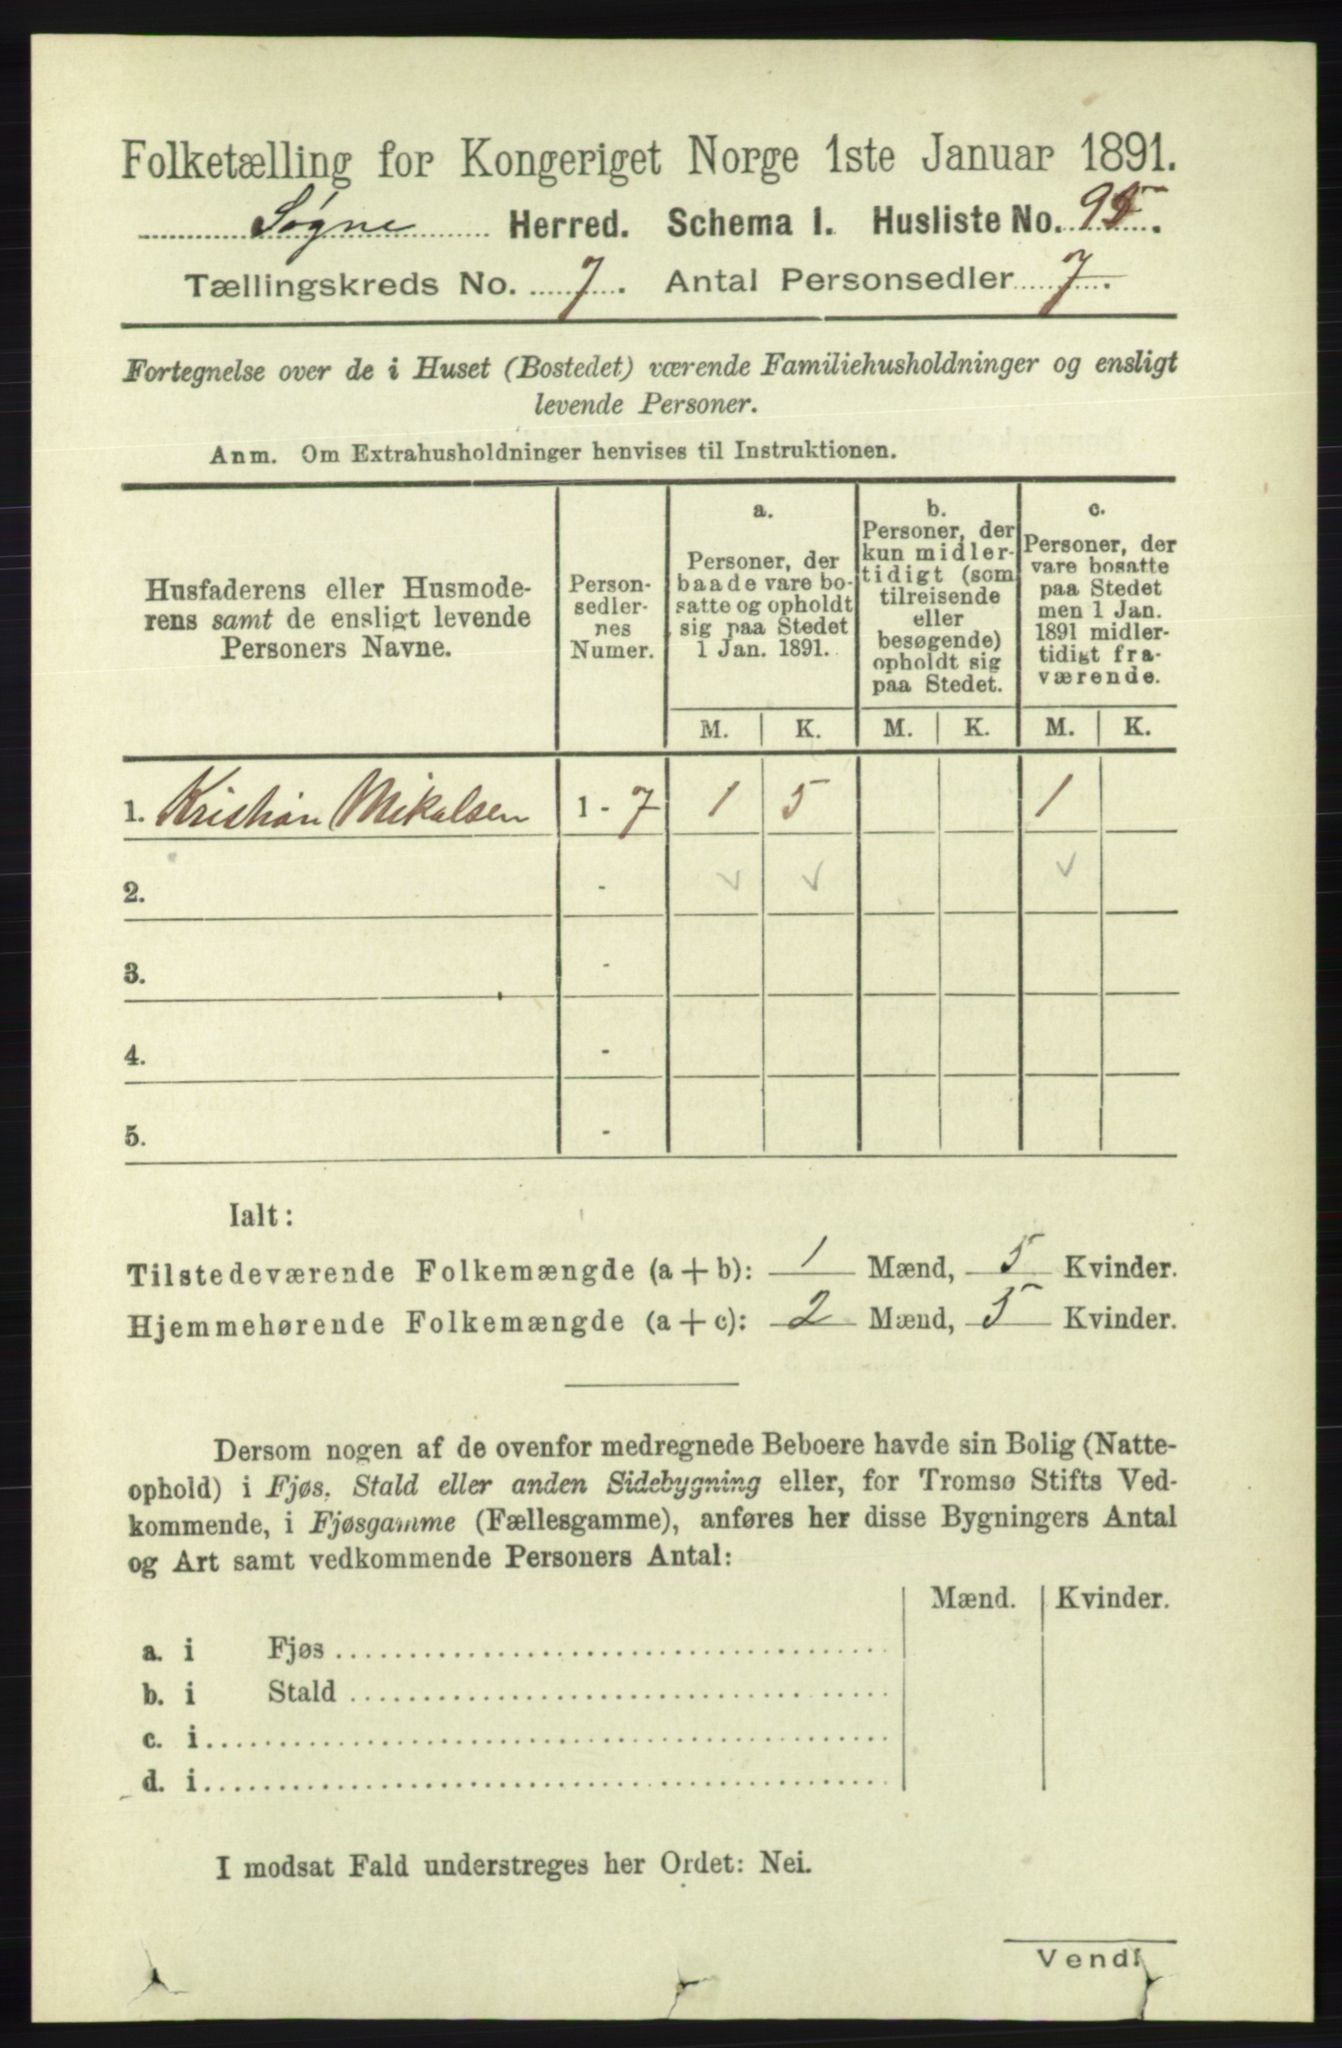 Folketælling for Kongeriget Norge 1ste Januar 1891.
Søgne Herred. Schema I. Husliste No. 95.
Tællingskreds No. 7. Antal Personsedler 7.
Fortegnelse over de i Huset (Bostedet) værende Familiehusholdninger og ensligt
levende Personer.
Anm. Om Extrahusholdninger henvises til Instruktionen.
Husfaderens eller Husmode-
rens samt de ensligt levende
Personers Navne.
Person-
sedler-
nes
Numer.
a.
Personer, der
baade vare bo-
satte og opholdt
sig paa Stedet
1 Jan. 1891.
b.
Personer, der
kun midler-
tidigt (som
tilreisende
eller
besøgende)
opholdt sig
paa Stedet.
c.
Personer, der
vare bosatte
paa Stedet
men 1 Jan.
1891 midler-
tidigt fra-
værende.
M. K. M. K. M. K.
1. Kristian Mikalsen 1 - 7 1 5 1
2. - ✓ ✓ ✓
3. -
4. -
5. -
Ialt:
Tilstedeværende Folkemængde (a + b): 1 Mænd, 5 Kvinder.
Hjemmehørende Folkemængde (a + c): 2 Mænd, 5 Kvinder.
Dersom nogen af de ovenfor medregnede Beboere havde sin Bolig (Natte-
ophold) i Fjøs, Stald eller anden Sidebygning eller, for Tromsø Stifts Ved-
kommende, i Fjøsgamme (Fællesgamme), anføres her disse Bygningers Antal
og Art samt vedkommende Personers Antal:
Mænd. Kvinder.
a. i Fjøs
b. i Stald
c. i
d. i
I modsat Fald understreges her Ordet: Nei.
Vend!